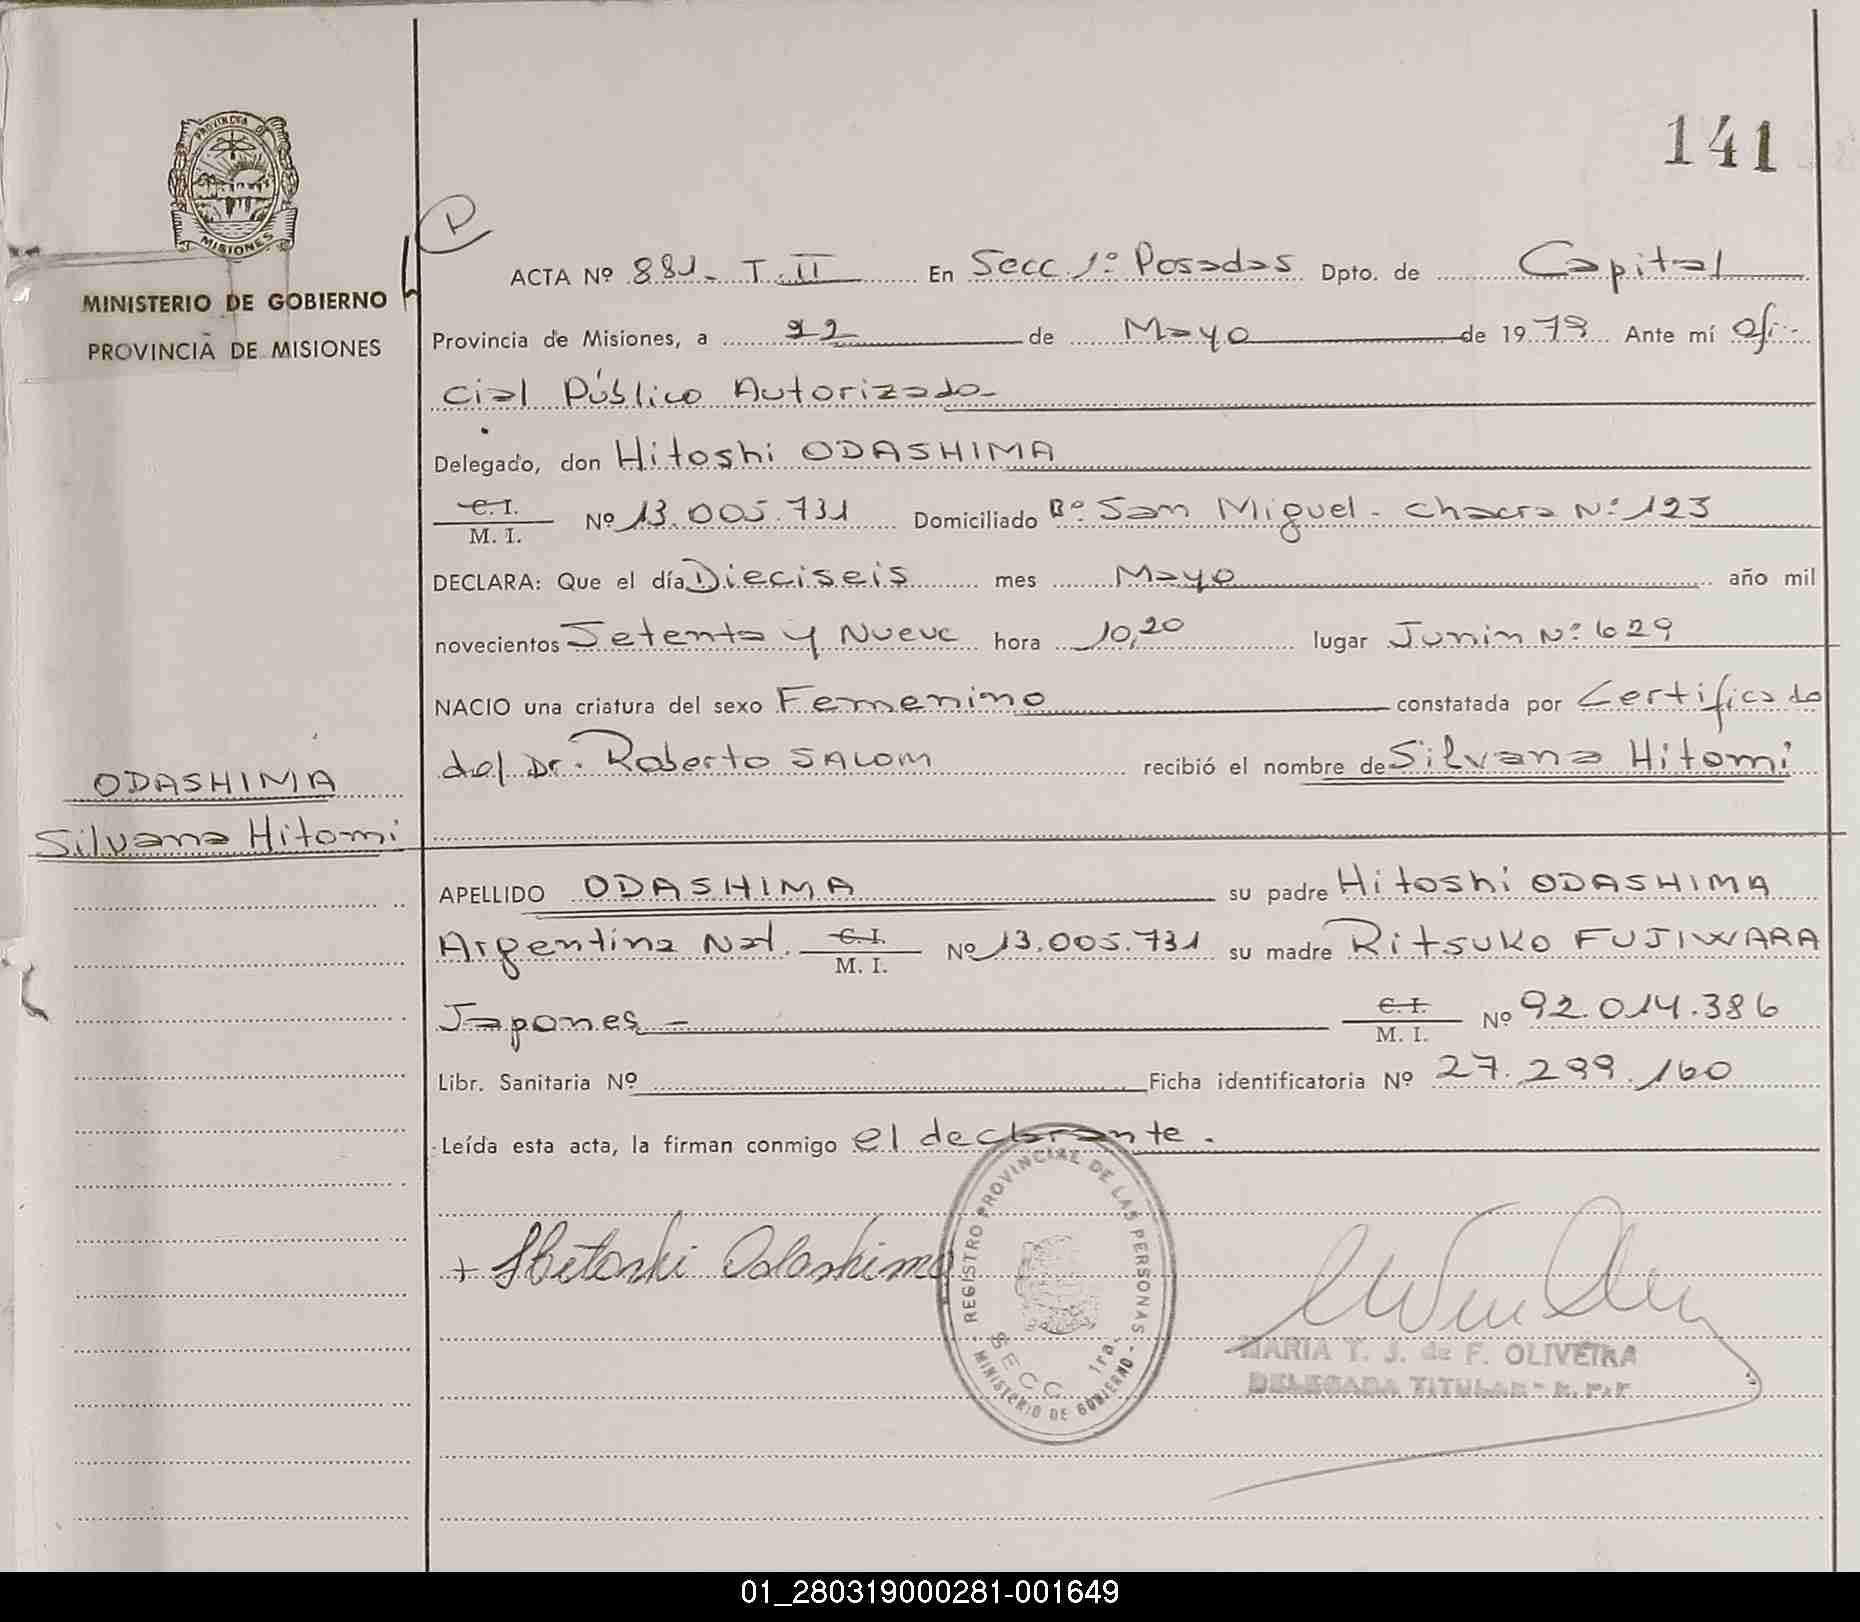 141
PROVINCIA DE
MISIONES
MINISTERIO DE GOBIERNO
PROVINCIA DE MISIONES
ACTA Nº 881- T. II En Secc 1º Posadas Dpto. de Capital
Provincia de Misiones, a 22 de Mayo de 1979 Ante mí Ofi-
cial Público Autorizado-
Delegado, don Hitoshi ODASHIMA
C. I.
M. I. Nº 13.005.731 Domiciliado Bº San Miguel - Chacra Nº 123
DECLARA: Que el día Dieciseis mes Mayo año mil
novecientos Setenta y Nueve hora 10,20 lugar Junin Nº 629
NACIO una criatura del sexo Femenino constatada por Certificado
del Dr. Roberto SALOM recibió el nombre de Silvana Hitomi
ODASHIMA
Silvana Hitomi
APELLIDO ODASHIMA su padre Hitoshi ODASHIMA
Argentina Nat. C. I.
M. I. Nº 13.005.731 su madre Ritsuko FUJIWARA
Japones - C. I.
M. I. Nº 92.014.386
Libr. Sanitaria Nº Ficha identificatoria Nº 27.299.160
Leída esta acta, la firman conmigo el declarante.
+ Hitoshi Odashima
REGISTRO PROVINCIAL DE LAS PERSONAS
SECC 1ra.
- MINISTERIO DE GOBIERNO -
MARIA T. J. de F. OLIVEIRA
DELEGADA TITULAR - R. P. P
01_280319000281-001649